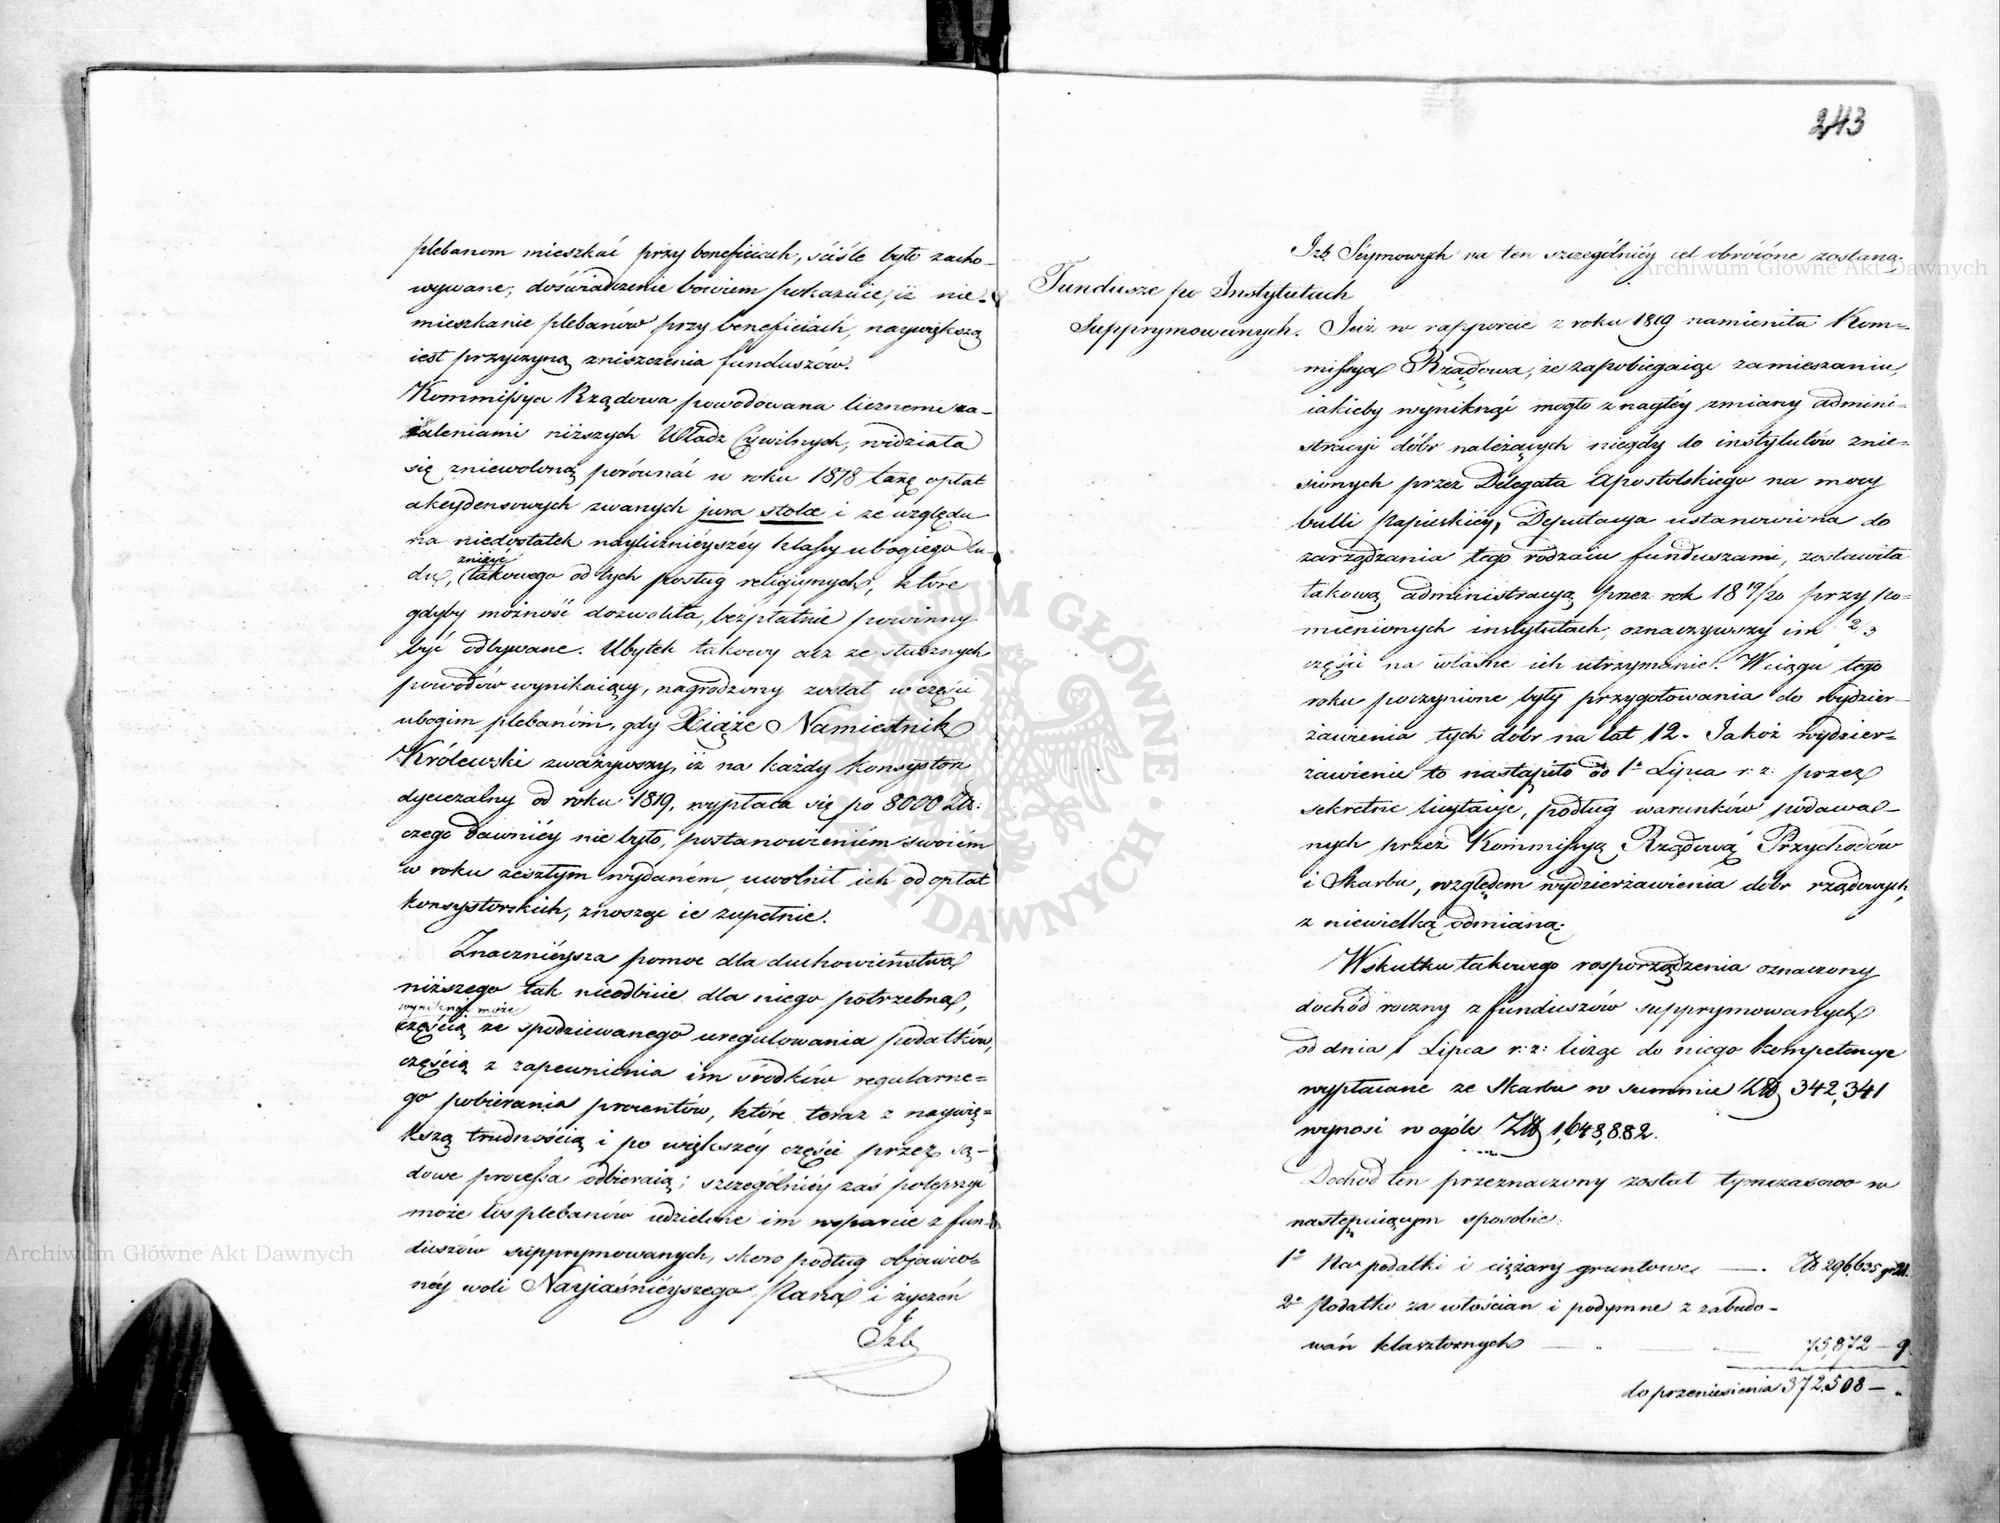 plebanom mieszkać przy beneficiach, ściśle było zacho-
wywane; doświadczenie bowiem pokazuie, iż nie-
mieszkanie plebanów przy beneficiach, naywiększą
iest przyczyną zniszczenia funduszów.
Kommissya Rządowa powodowana licznemi za-
żaleniami niższych Władz Cywilnych, widziała
się zniewoloną porównać w roku 1818 taxę opłat
akcydensowych zwanych jura stolæ i ze względu
na niedostatek naylicznieyszéy klassy ubogiego lu-
zniżyć
du, takowego od tych posług religijnych, które
gdyby możność dozwoliła, bezpłatnie powinny
być odbywane. Ubytek takowy acz ze słusznych
powodów wynikaiący, nagrodzony został w części
ubogim plebanóm, gdy Xiąże Namiestnik
Królewski zważywszy, iż na każdy konsystorz
dyecezalny od roku 1819, wypłaca się po 8000 Złt:
czego dawniéy nie było, postanowieniém swoiém
w roku zeszłym wydaném, uwolnił ich od opłat
konsystorskich, znosząc ie zupełnie.
Znacznieysza pomoc dla duchowieństwa
niższego tak nieodbicie dla niego potrzebna,
wyniknąć może
częścią ze spodziewanego uregulowania podatków,
częścią z zapewnienia im środków regularne-
go pobierania procentów, które teraz z naywię-
kszą trudnością i po większéy części przez są-
dowe processa odbieraią; szczególniéy zaś polepszyć
może los plebanów udzielone im wsparcie z fun-
duszów supprymowanych, skoro podług objawio-
néy woli Nayiaśnieyszego Pana i życzeń
Izb
243
Izb Seymowych na ten szczególniéy cel obrócone zostaną.
Fundusze po Instytutach
Supprymowanych.
Już w rapporcie z roku 1819 namieniła Kom-
missya Rządowa, że zapobiegaiąc zamieszaniu,
iakieby wyniknąć mogło z nagłéy zmiany admini-
stracyi dóbr należących niegdy do instytutów znie-
sionych przez Delegata Apostolskiego na mocy
bulli Papieskiéy, Deputacya ustanowiona do
zarządzania tego rodzaiu funduszami, zostawiła
takową administracyą przez rok 18 19/20 przy po-
mienionych instytutach, oznaczywszy im 2/3
części na własne ich utrzymanie. W ciągu tego
roku poczynione były przygotowania do wydzier-
żawienia tych dóbr na lat 12. Jakoż wydzier-
żawienie to nastąpiło do 1° Lipca r: z: przez
sekretne licytacye, podług warunków podawa-
nych przez Kommissyą Rządową Przychodów
i Skarbu, względem wydzierżawienia dóbr rządowych,
z niewielką odmianą.
Wskutku takowego rosporządzenia oznaczony
dochód roczny z funduszów supprymowanych
od dnia 1 Lipca r: z: licząc do niego kompetencye
wypłacane ze Skarbu w summie Złt 342,341
wynosi w ogóle Złt 1,648,882.
Dochód ten przeznaczony został tymczasowo w
następuiącym sposobie:
1° Na podatki i ciężary gruntowe — Złt 296,635 gr 21.
2° Podatki za włościan i podymne z zabudo-
wań klasztornych — 75,872 — 9
do przeniesienia 372,508 — „
Archiwum Główne Akt Dawnych
Archiwum Główne Akt Dawnych
ARCHIWUM GŁÓWNE AKT DAWNYCH